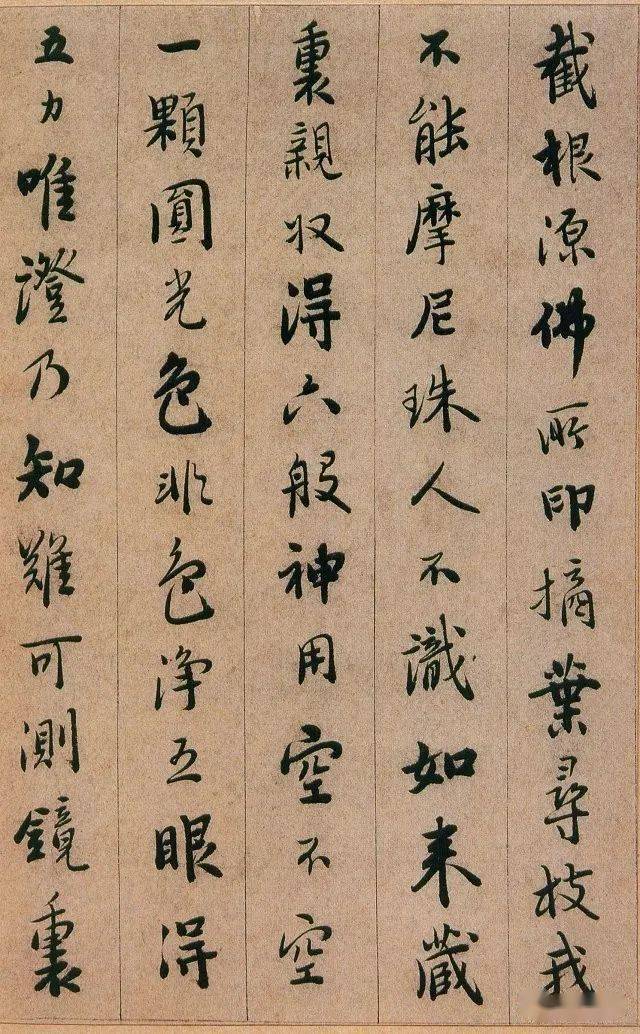 截根源佛所印摘葉尋枝我
不能摩尼珠人不識如来藏
裏親収得六般神用空不空
一顆圓光色非色净五眼得
五力唯證乃知難可測鏡裏